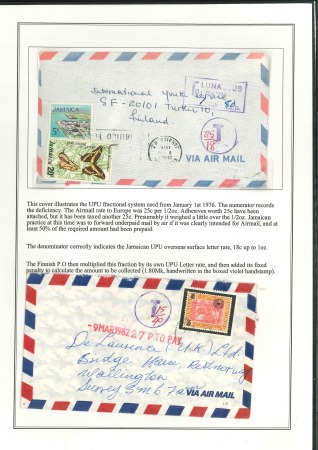 LUNA
International Youth Service
SF-20101 Turku 10
Finland
80
JAMAICA
5
Jamaica
20
T
25
18
VIA AIR MAIL
This cover illustrates the UPU fractional system used from January 1st 1976. The numerator records
the deficiency. The Airmail rate to Europe was 25c per 1/2oz. Adhesives worth 25c have been
attached, but it has been taxed another 25c. Presumably it weighed a little over the 1/2oz. Jamaican
practice at this time was to forward underpaid mail by air if it was clearly intended for Airmail, and at
least 50% of the required amount had been prepaid.
The denominator correctly indicates the Jamaican UPU overseas surface letter rate, 18c up to 1oz.
The Finnish P.O then multiplied this fraction by its own UPU Letter rate, and then added its fixed
penalty to calculate the amount to be collected (1.80Mk, handwritten in the boxed violet handstamp).
T
15
40
-9 MAR 1982 27 P TO PAY
De Laurence (U.K) Ltd.
Bridge House Restmor Way
Wallington
Surrey SM6 7AH
VIA AIR MAIL